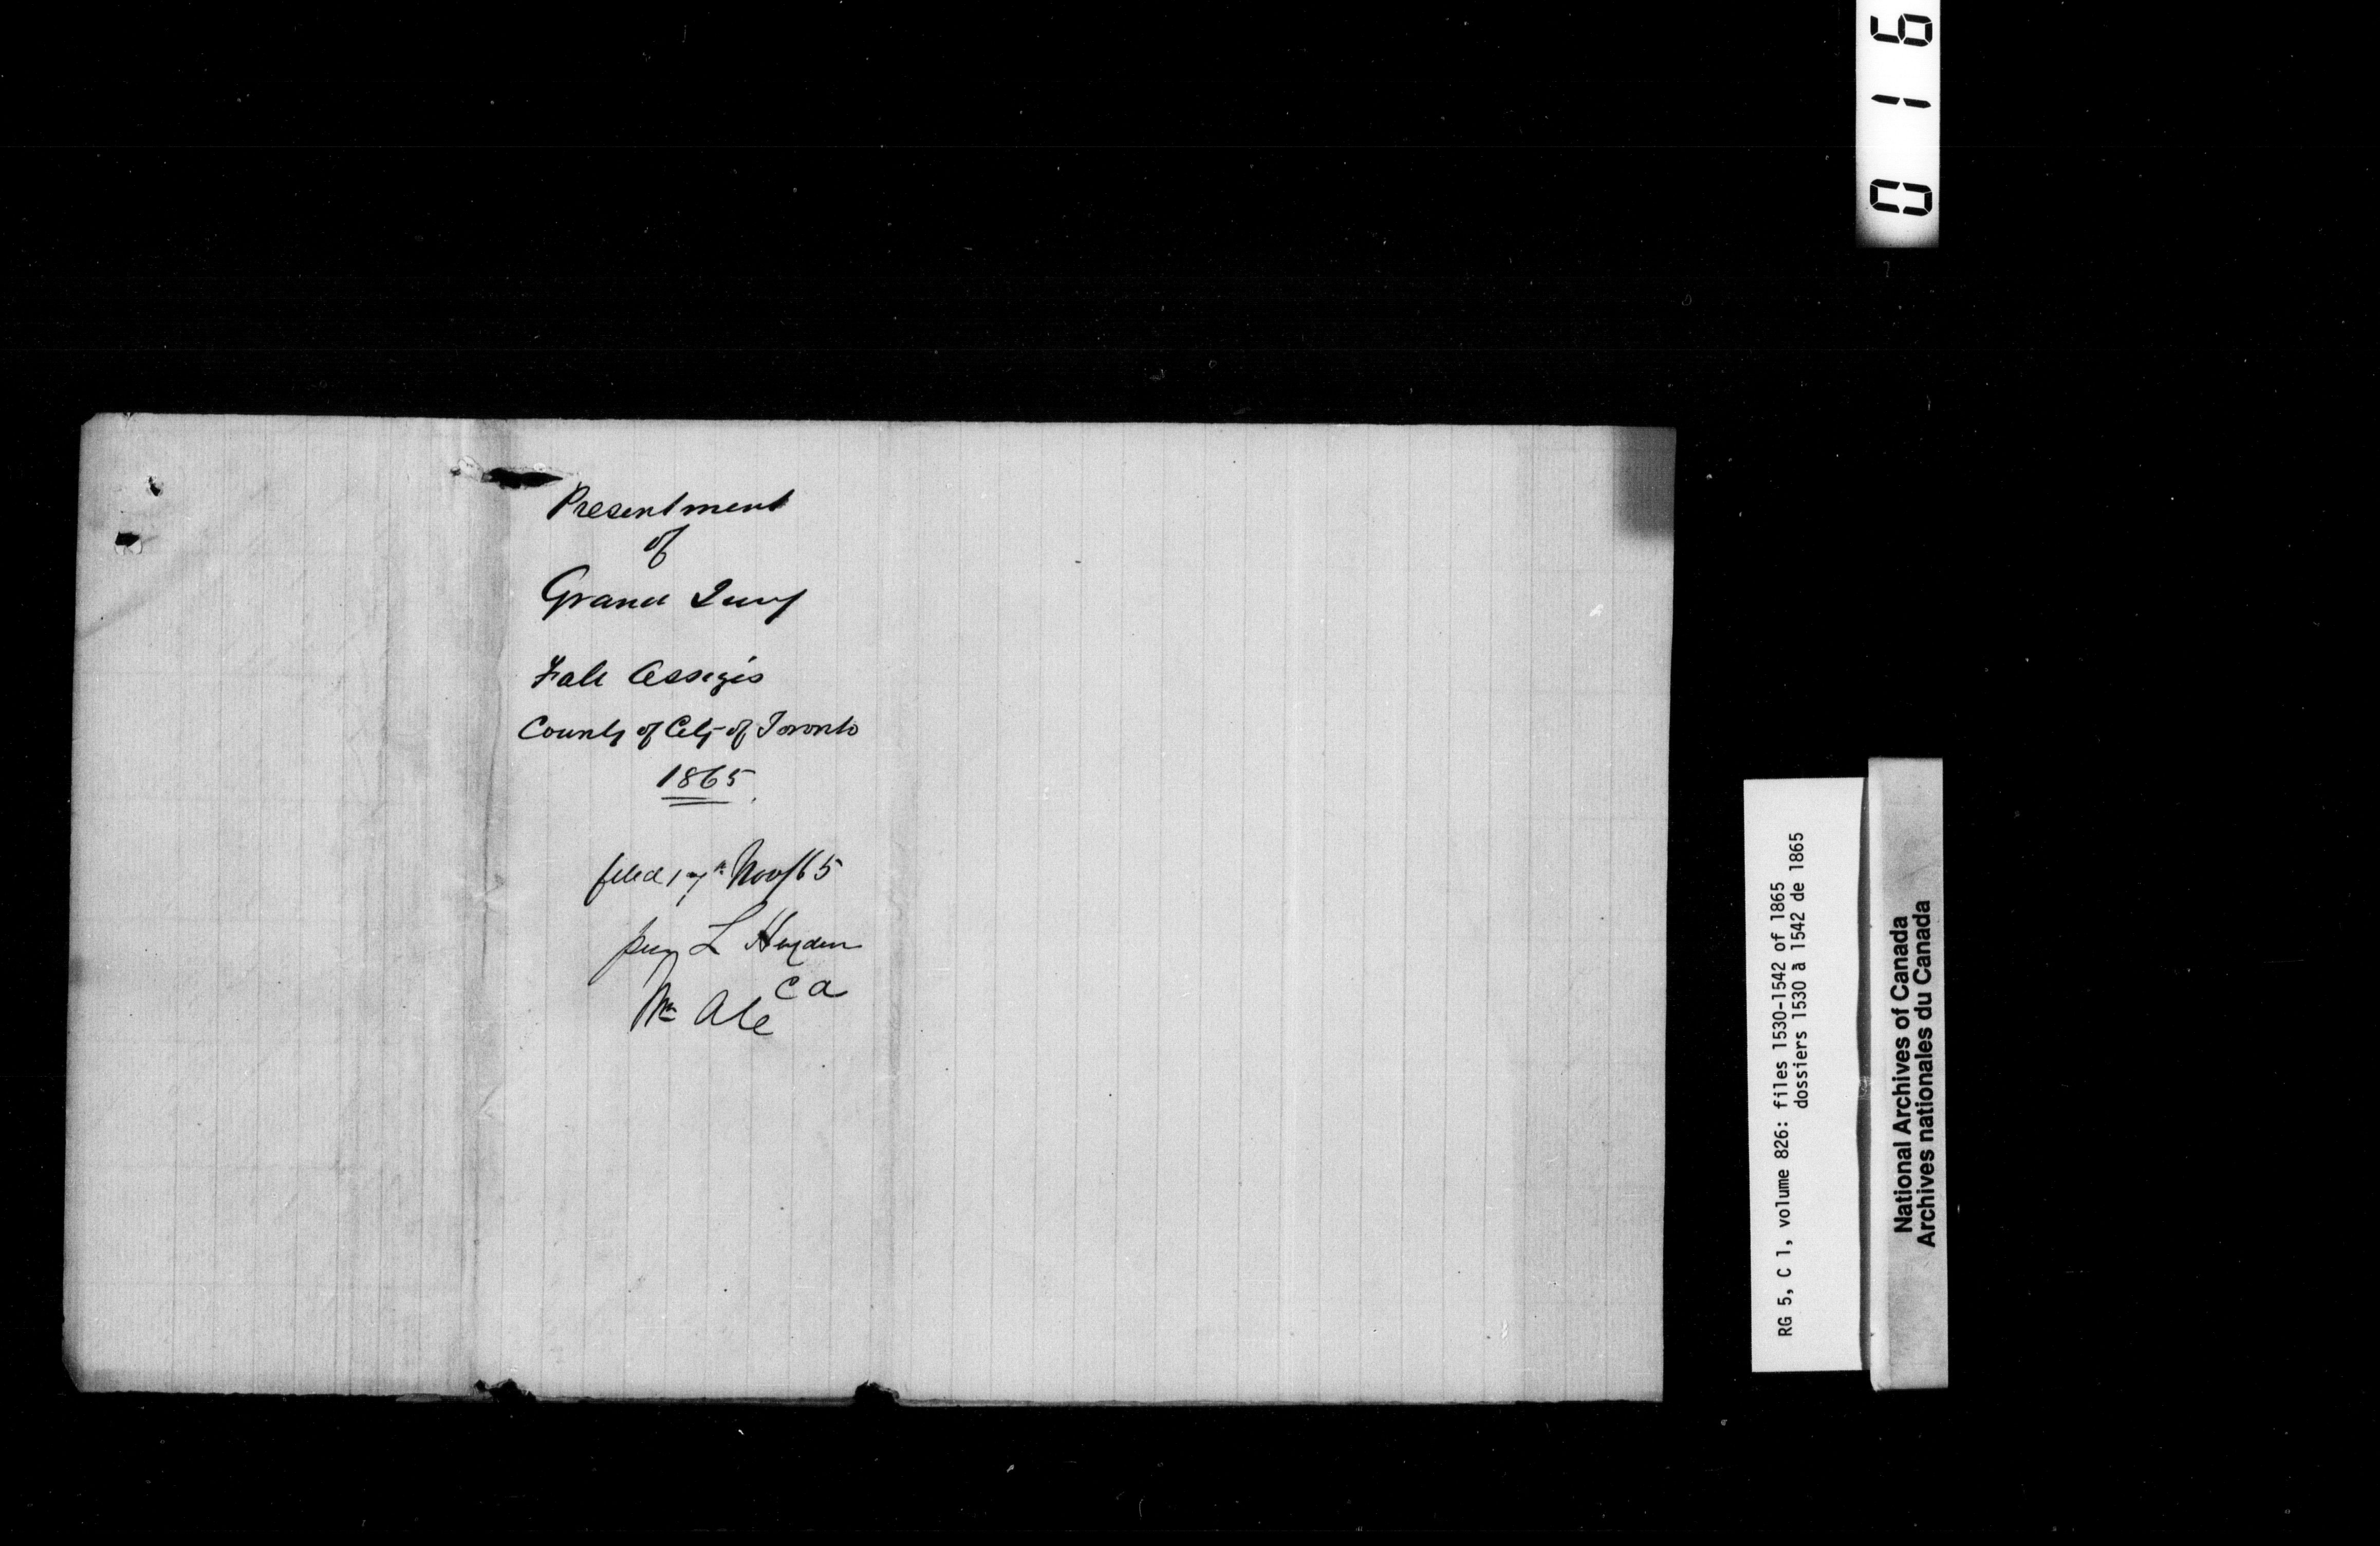 Presentment
of
Grand Jury
Fall Assizes
County of City of Toronto
1865
filed 17th Nov/65
L Heyden
C a
RG 5, C 1, volume 826: files 1530-1542 of 1865
dossiers 1530 à 1542 de 1865
National Archives of Canada
Archives nationales du Canada
016